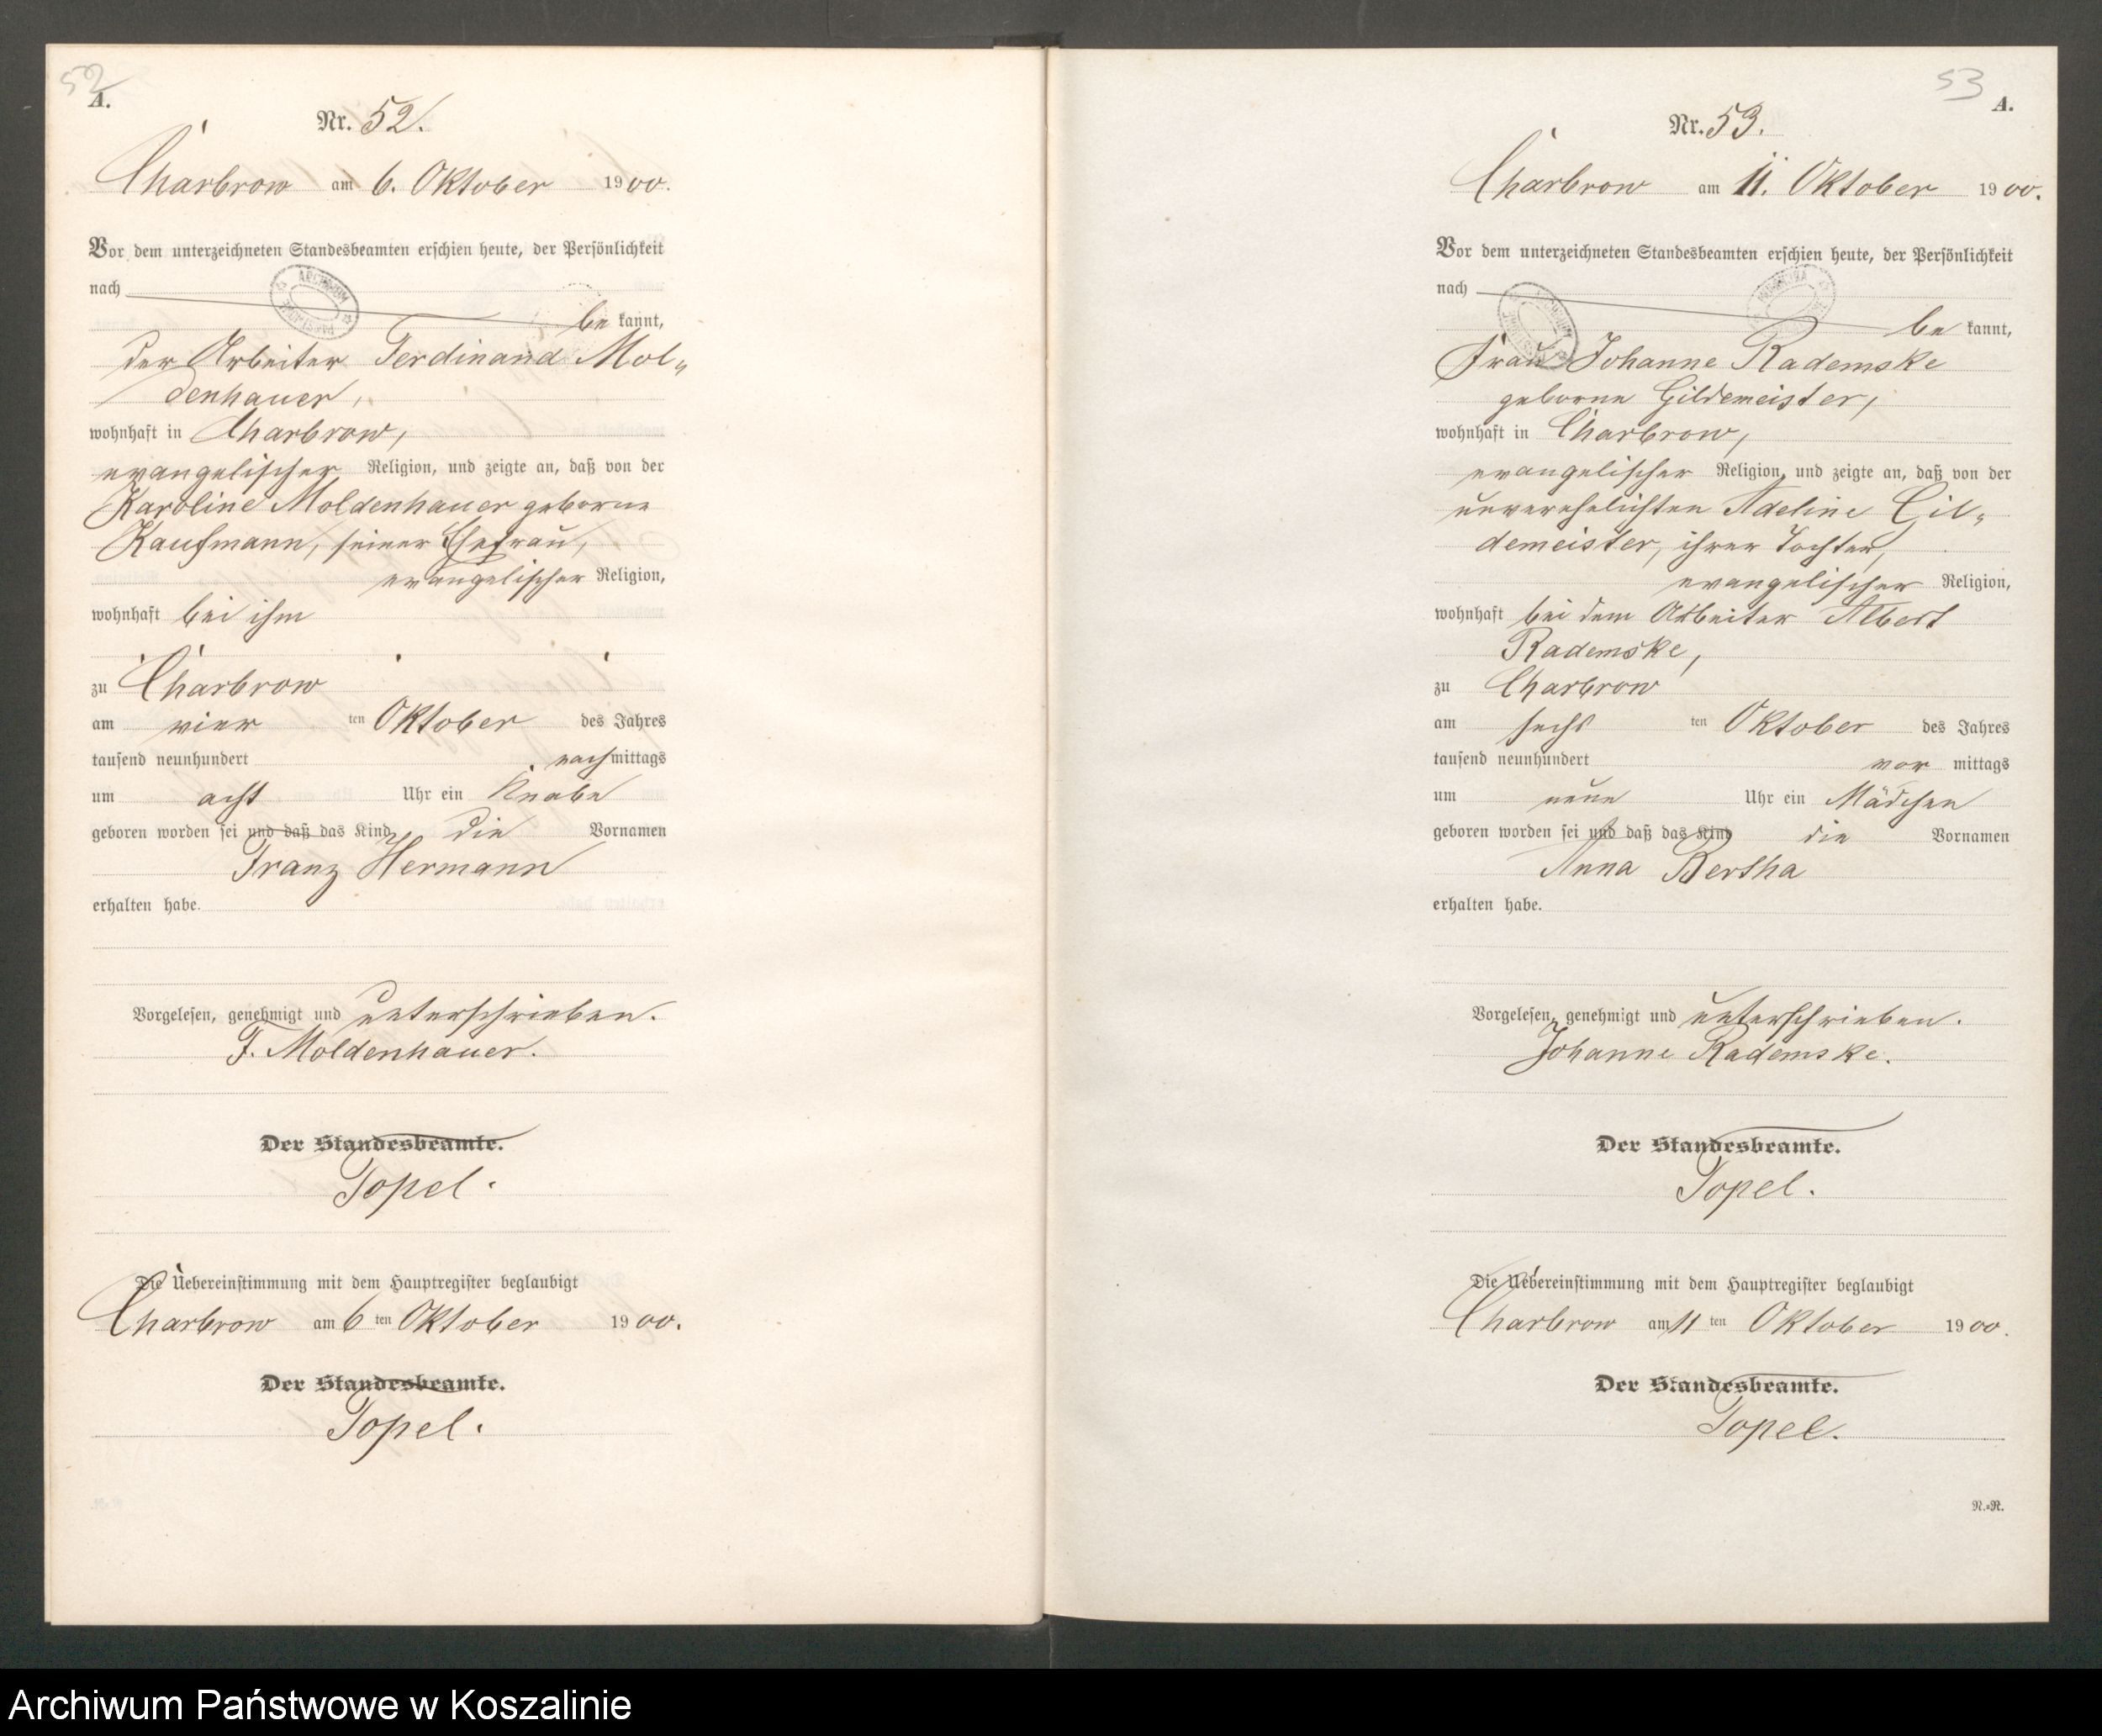 52
A.
Nr. 52.
Charbrow am 6. Oktober 1900.
Vor dem unterzeichneten Standesbeamten erschien heute, der Persönlichkeit
nach
be kannt,
der Arbeiter Ferdinand Mol„
denhauer,
wohnhaft in Charbrow,
evangelischer Religion, und zeigte an, daß von der
Karoline Moldenhauer geborne
Kaufmann, seiner Ehefrau,
evangelischer Religion,
wohnhaft bei ihm
zu Charbrow
am vier ten Oktober des Jahres
tausend neunhundert nachmittags
um acht Uhr ein Knabe
geboren worden sei und daß das Kind die Vornamen
Franz Hermann
erhalten habe.
Vorgelesen, genehmigt und unterschrieben.
F. Moldenhauer.
Der Standesbeamte.
Topel.
Die Uebereinstimmung mit dem Hauptregister beglaubigt
Charbrow am 6 ten Oktober 1900.
Der Standesbeamte.
Topel.
53
A.
Nr. 53.
Charbrow am 11. Oktober 1900.
Vor dem unterzeichneten Standesbeamten erschien heute, der Persönlichkeit
nach
be kannt,
Frau Johanne Rademske
geborne Gildemeister,
wohnhaft in Charbrow,
evangelischer Religion, und zeigte an, daß von der
unverehelichten Adeline Gil„
demeister, ihrer Tochter,
evangelischer Religion,
wohnhaft bei dem Arbeiter Albert
Rademske,
zu Charbrow
am sechs ten Oktober des Jahres
tausend neunhundert vor mittags
um neun Uhr ein Mädchen
geboren worden sei und daß das Kind die Vornamen
Anna Bertha
erhalten habe.
Vorgelesen, genehmigt und unterschrieben.
Johanne Rademske.
Der Standesbeamte.
Topel.
Die Uebereinstimmung mit dem Hauptregister beglaubigt
Charbrow am 11 ten Oktober 1900.
Der Standesbeamte.
Topel.
N.=R.
Archiwum Państwowe w Koszalinie